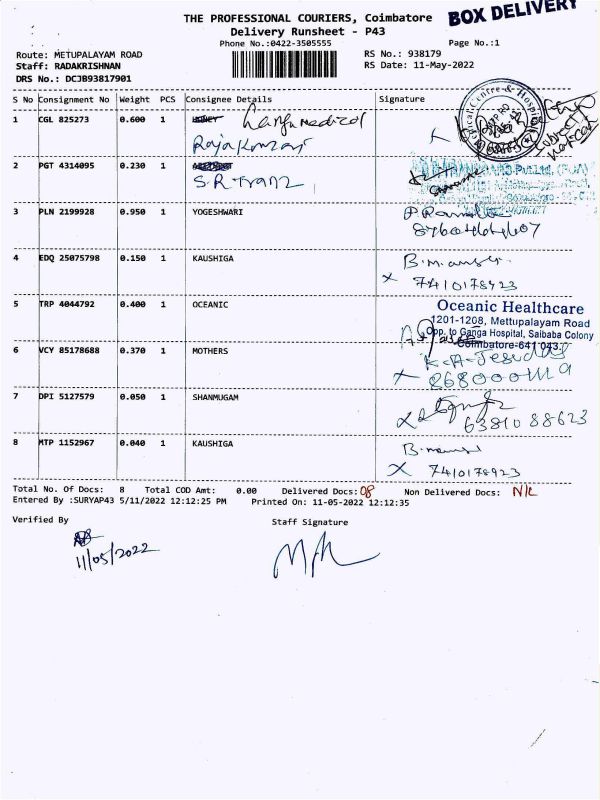 THE PROFESSIONAL COURIERS, Coimbatore
BOX DELIVERY
Delivery Runsheet - P43
Phone No.:0422-3505555
Page No.:1
Route: METUPALAYAM ROAD
RS No.: 938179
Staff: RADAKRISHNAN
RS Date: 11-May-2022
DRS No.: DCJB93817901
S No Consignment No Weight PCS Consignee Details Signature
1 CGL 825273 0.600 1 Ganga medical
Rajakumari
2 PGT 4314095 0.230 1
S.R Tranz
3 PLN 2199928 0.950 1 YOGESHWARI
4 EDQ 25075798 0.150 1 KAUSHIGA
X 7410178923
5 TRP 4044792 0.400 1 OCEANIC
Oceanic Healthcare
1201-1208, Mettupalayam Road
Opp. to Ganga Hospital, Saibaba Colony
Coimbatore-641 043.
6 VCY 85178688 0.370 1 MOTHERS
7 DPI 5127579 0.050 1 SHANMUGAM
6381088623
8 MTP 1152967 0.040 1 KAUSHIGA
X 7410178923
Total No. Of Docs: 8 Total COD Amt: 0.00 Delivered Docs: 08 Non Delivered Docs: NIL
Entered By :SURYAP43 5/11/2022 12:12:25 PM Printed On: 11-05-2022 12:12:35
Verified By Staff Signature
11/05/2022